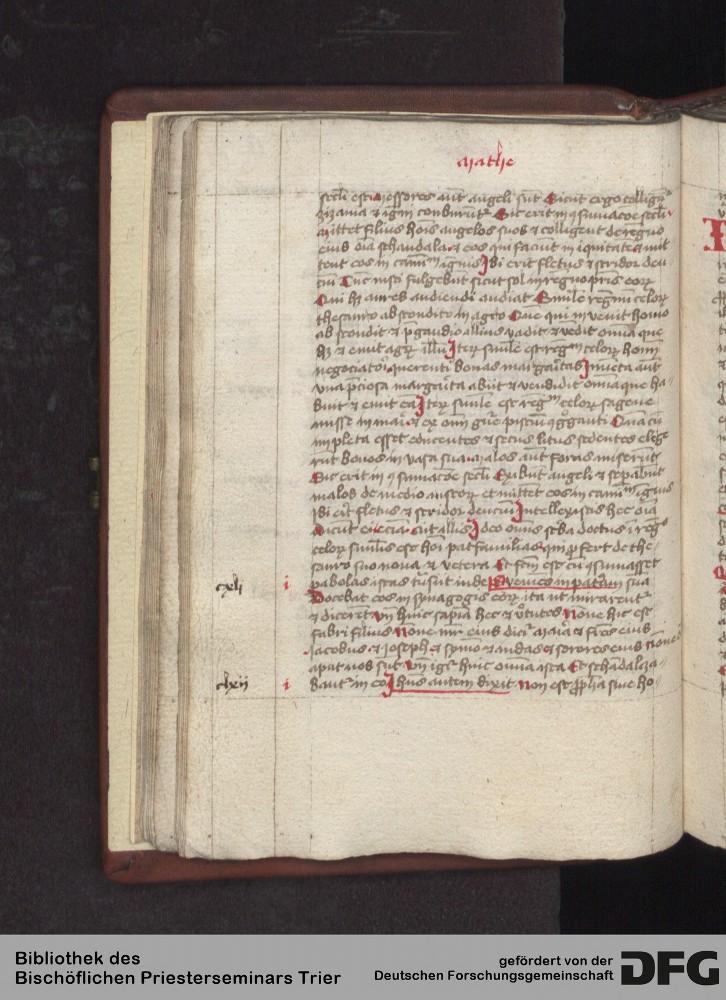 Mathe
secli est Messores aut angeli sut Sicut ergo colligut
zizania et igni conburut Sic erit in 9sumacoe secli
Mittet filius hois angelos suos et colligent de regno
eius oia schandala et eos qui faciut iniquitatem mit
tent eos in camin ignis Ibi erit fletus et stridor den
ciu Tuc iusti fulgebut sicut sol in regno pris eor
Qui hz aures audiendi audiat Simile regnu celor
thesauro abscondito in agro Que qui invenit homo
abscondit et p gaudio illius vadit et vedit omnia que
hz et emit agr illu Iter simile est regm celor homi
negociatori querenti bonas margaritas Inventa aut
vna pciosa margarita abiit et vendidit omnia que ha
buit et emit ea Iter simile est regm celor sagene
misse in mari et ex omi gne pisciu 9gganti Quam cu
impleta esset educentes et secus litus sedentes elege
rut bonos in vasa sua malos aut foras miserut
Sic erit in 9sumacoe secli Exibut angeli et sepabut
malos de medio iustor et mittet eos in camin ignis
Ibi erit fletus et stridor denciu Intellexistis hec oia
Dicut ei eciam ait illis Ideo omis scba doctus i rego
celor similis est hoi patfamilias qui pfert de the
sauro suo nova et vetera Et fcm est cu 9sumasset
cxli i pabolas istas ihsus tnsiit inde Et veniens in patriam sua
Docebat eos in synagogis eor ita ut mirarent
et dicerent vn huic sapia hec et vtutes None hic est
fabri filius None mr eius dicit maria et fres eius
Jacobus et Joseph et symo et iudas et sorores eius None
aput nos sut vn igr huic omnia ista Et schadaliza-
cxlii i bant in eo Ihus autem dixit Non est ppha sine ho-
Bibliothek des
Bischöflichen Priesterseminars Trier
gefördert von der
Deutschen Forschungsgemeinschaft
DFG